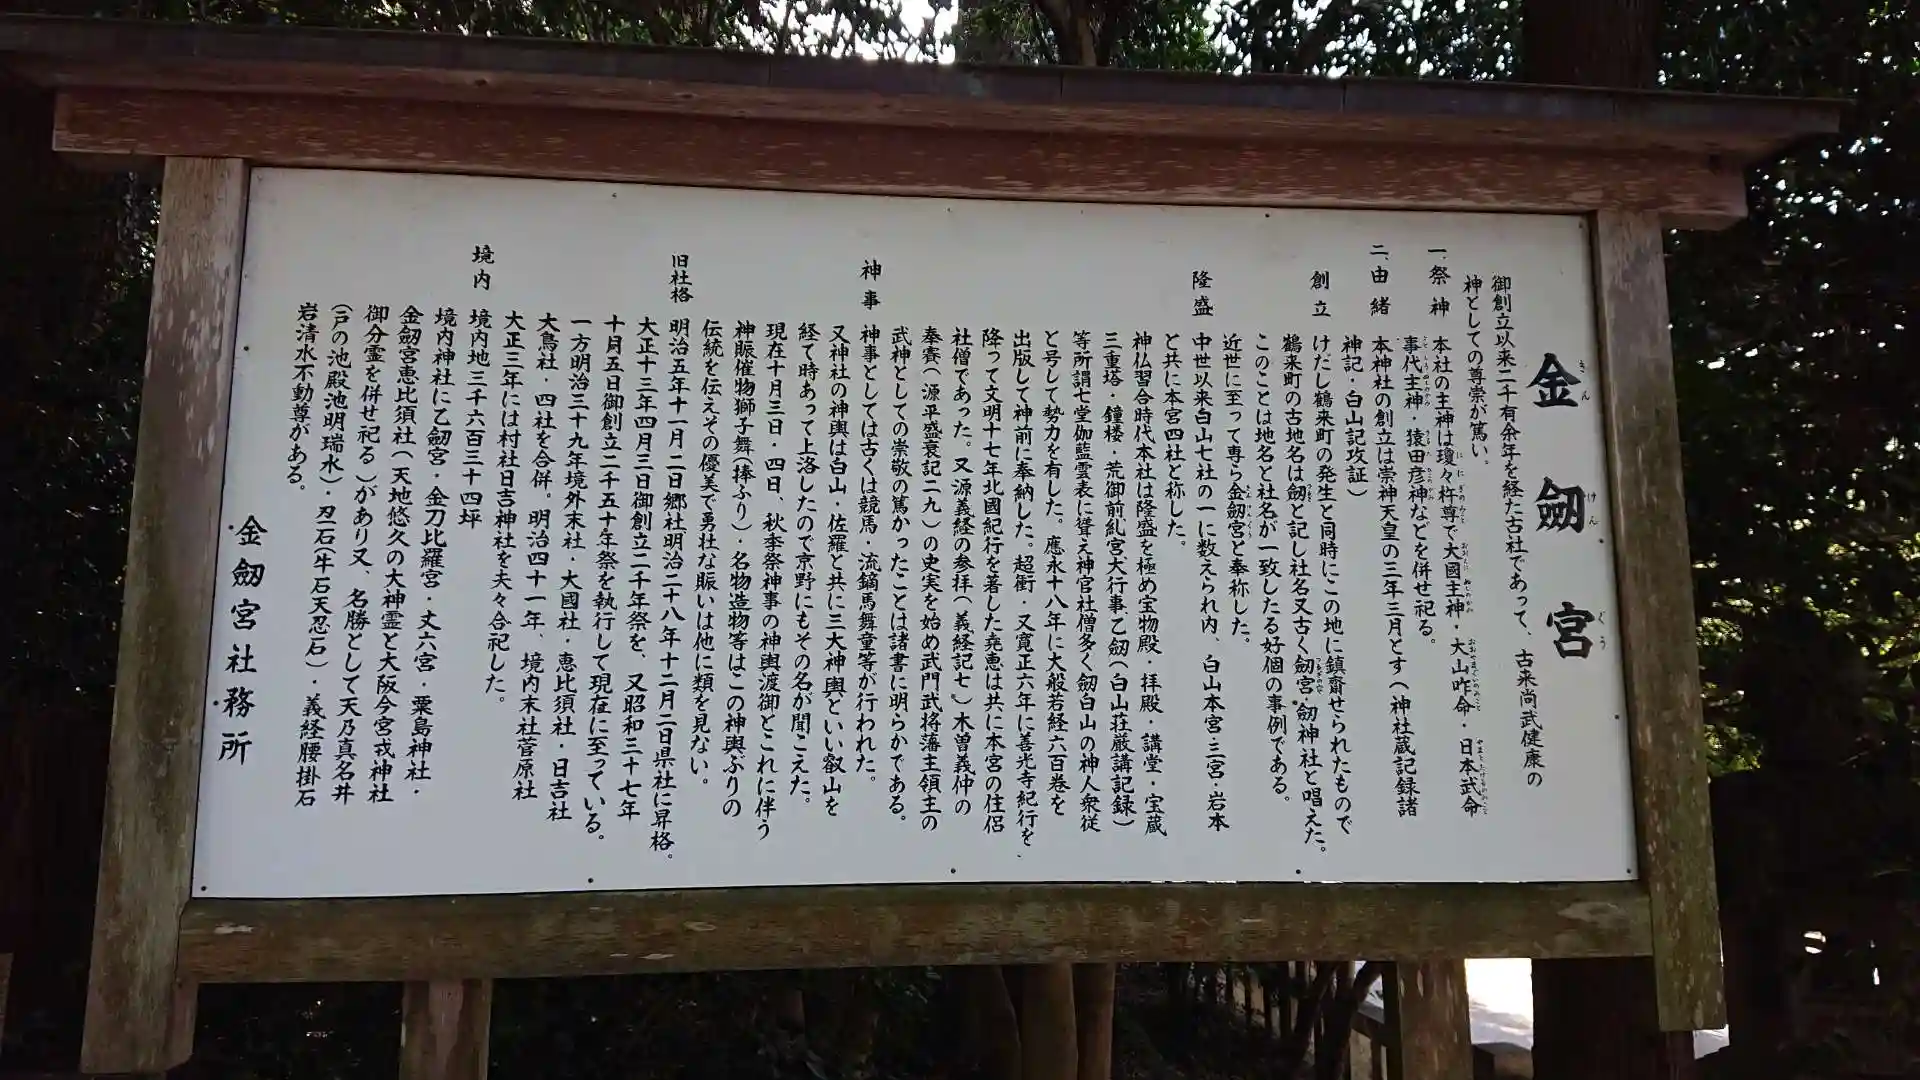 金劔宮
きんけんぐう
御創立以来二千有余年を経た古社であって、古来尚武健康の
神としての尊崇が篤い。
一、祭神 本社の主神は瓊々杵尊で大國主神・大山咋命・日本武命
事代主神・猿田彦神などを併せ祀る。
二、由緒
創立 本神社の創立は崇神天皇の三年三月とす(神社蔵記録諸
神記・白山記攻証)
けだし鶴来町の発生と同時にこの地に鎮齋せられたもので
鶴来町の古地名は劔と記し社名又古く劔宮・劔神社と唱えた。
このことは地名と社名が一致したる好個の事例である。
近世に至って専ら金劔宮と奉称した。
隆盛 中世以来白山七社の一に数えられ内、白山本宮・三宮・岩本
と共に本宮四社と称した。
神仏習合時代本社は隆盛を極め宝物殿・拝殿・講堂・宝蔵
三重塔・鐘楼・荒御前糺宮大行事乙劔(白山荘厳講記録)
等所謂七堂伽藍雲表に聳え神官社僧多く劔白山の神人衆従
と号して勢力を有した。應永十八年に大般若経六百巻を
出版して神前に奉納した。超衝・又寛正六年に善光寺紀行を
降って文明十七年北國紀行を著した尭恵は共に本宮の住侶
社僧であった。又源義経の参拝(義経記七)木曽義仲の
奉賽(源平盛衰記二九)の史実を始め武門武将藩主領主の
武神としての崇敬の篤かったことは諸書に明らかである。
神事 神事としては古くは競馬・流鏑馬舞童等が行われた。
又神社の神輿は白山・佐羅と共に三大神輿といい叡山を
経て時あって上洛したので京野にもその名が聞こえた。
現在十月三日・四日、秋季祭神事の神輿渡御とこれに伴う
神賑催物獅子舞(棒ふり)・名物造物等はこの神輿ぶりの
伝統を伝えその優美で勇壮な賑いは他に類を見ない。
旧社格 明治五年十一月二日郷社明治二十八年十二月二日県社に昇格。
大正十三年四月三日御創立二千年祭を、又昭和三十七年
十月五日御創立二千五十年祭を執行して現在に至っている。
一方明治三十九年境外末社・大國社・恵比須社・日吉社
大鳥社・四社を合併。明治四十一年、境内末社菅原社
大正三年には村社日吉神社を夫々合祀した。
境内 境内地三千六百三十四坪
境内神社に乙劔宮・金刀比羅宮・丈六宮・粟島神社・
金劔宮恵比須社(天地悠久の大神霊と大阪今宮戎神社
御分霊を併せ祀る)があり又、名勝として天乃真名井
(戸の池殿池明瑞水)・忍石(牛石天忍石)・義経腰掛石
岩清水不動尊がある。
金劔宮社務所